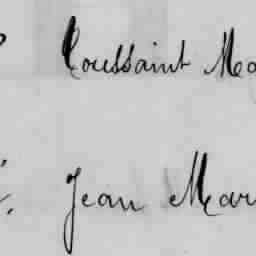 Toussaint Ma
Jean Mar